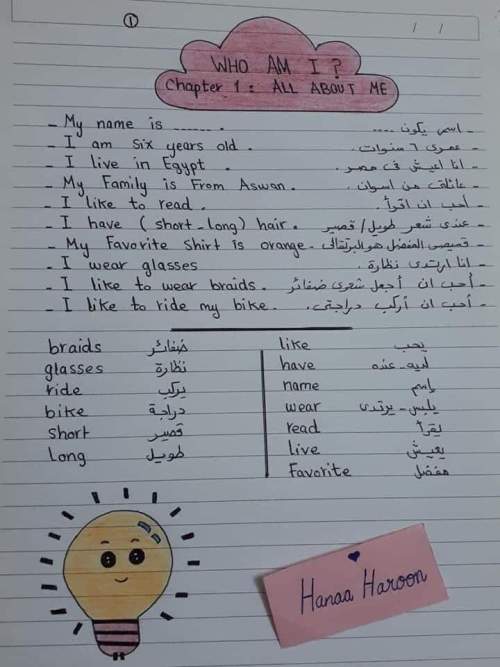 ①
/ /
WHO AM I ?
Chapter 1 : ALL ABOUT ME
- My name is ...... . - اسمى يكون ....
- I am six years old . - عمرى ٦ سنوات .
- I live in Egypt . - انا اعيش فى مصر .
- My Family is From Aswan . - عائلتى من اسوان .
- I like to read . - أحب ان اقرأ .
- I have ( short - long ) hair . - عندى شعر طويل / قصير
- My Favorite shirt is orange - قميصى المفضل هو البرتقالى
- I wear glasses - انا ارتدى نظارة .
- I like to wear braids . - أحب ان أجعل شعرى ضفائر
- I like to ride my bike . - أحب ان أركب دراجتى .
braids ضفائر
glasses نظارة
ride يركب
bike دراجة
short قصير
long طويل
like يحب
have لديه - عنده
name إسم
wear يلبس - يرتدى
read يقرأ
live يعيش
Favorite مفضل
Hanaa Haroon